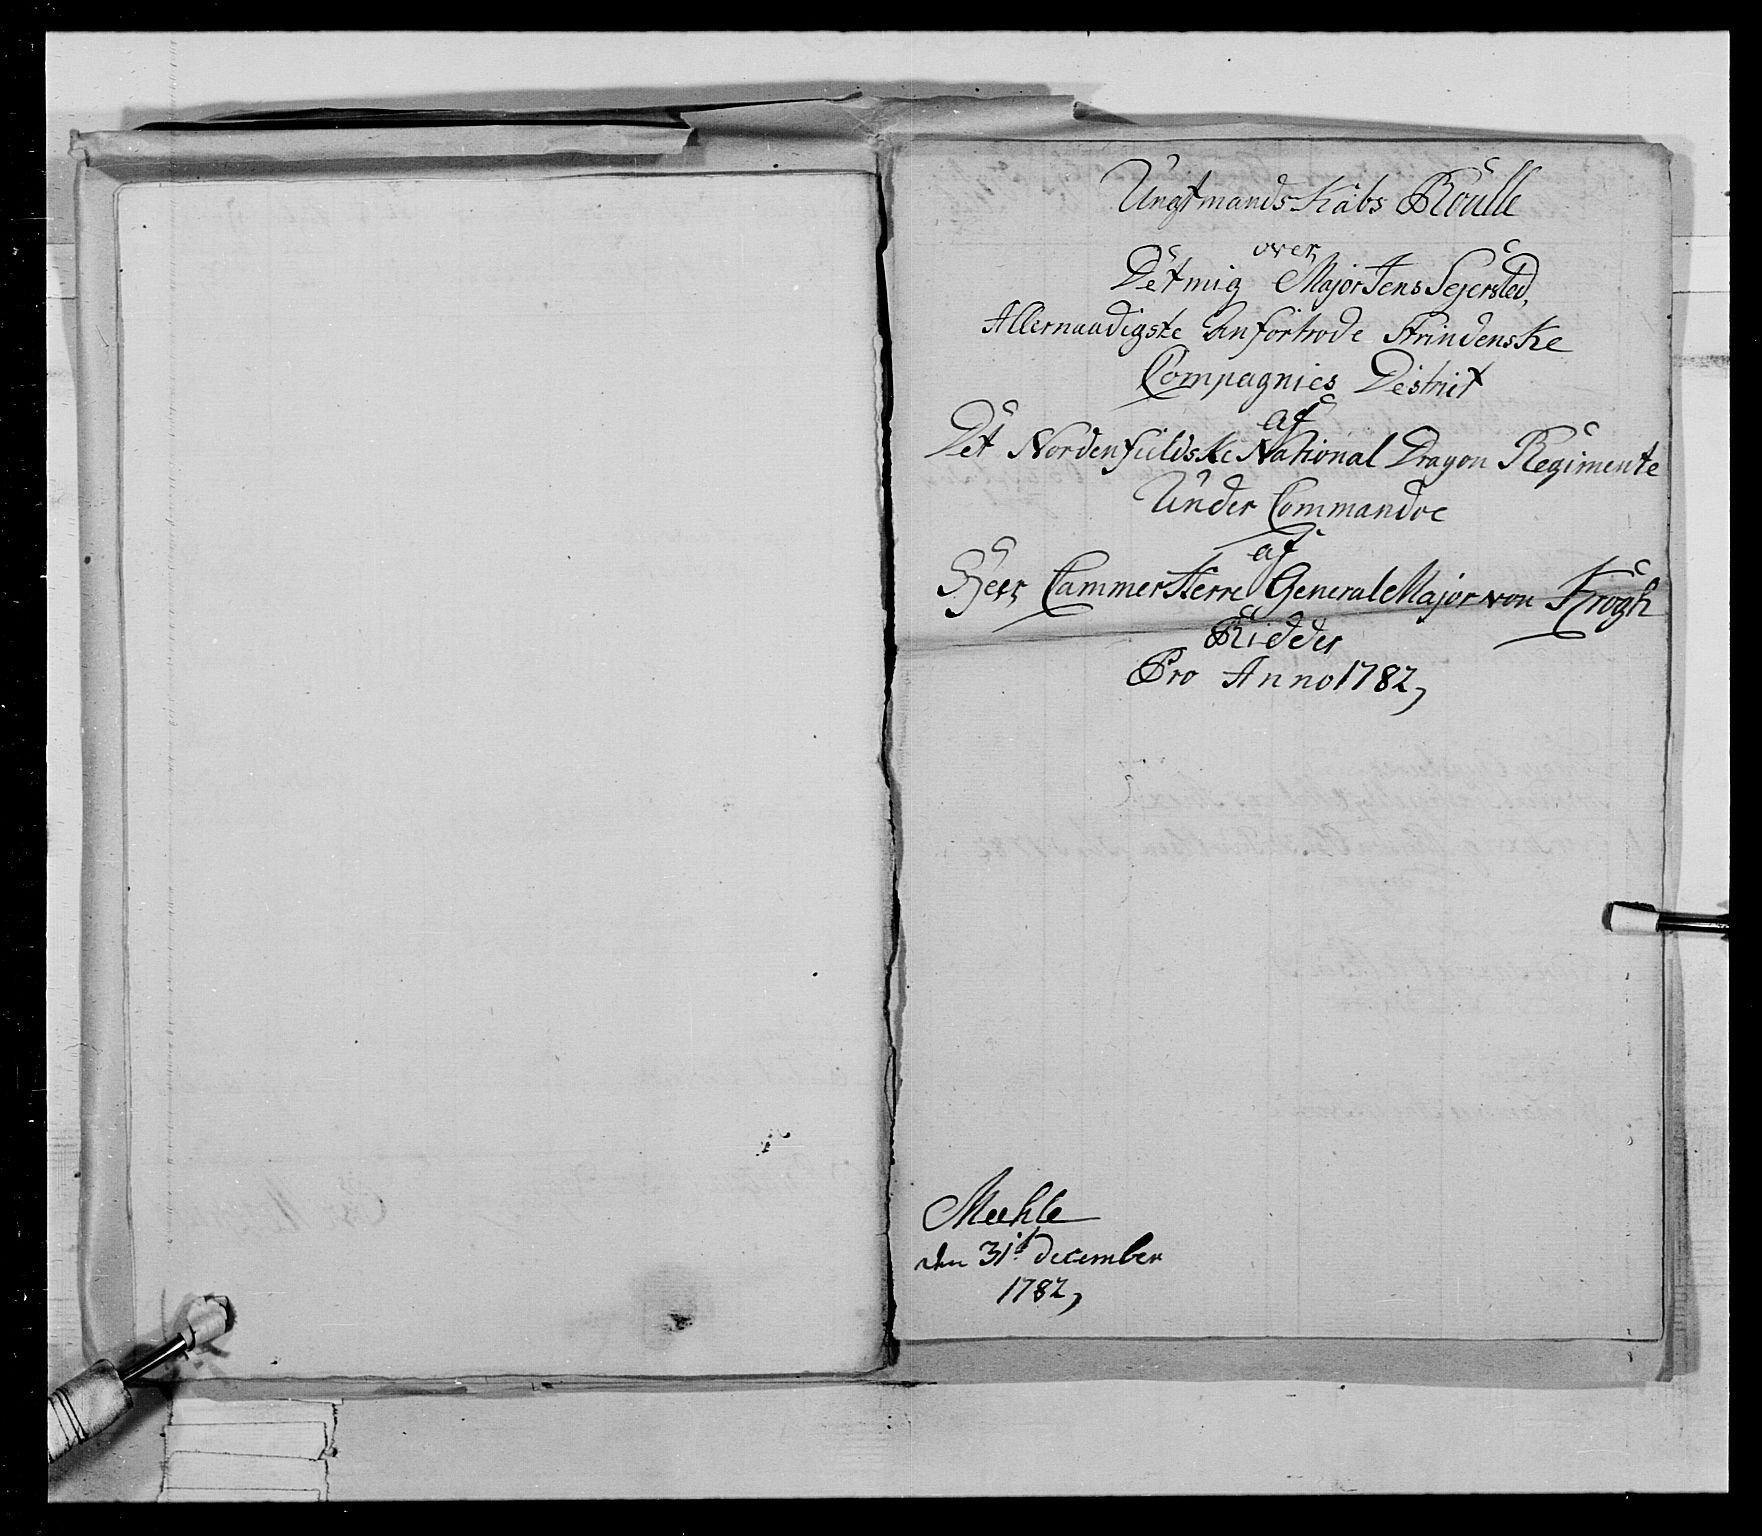 Ungtmands Kabs Roulle
over
Det mig Major Jens Sejersted,
Allernaadigste Anfortrode Strindenske
Compagnies District
af
Det Nordenfieldske National Dragon Regimente
Under Commandoe
af
Herr Cammer Herre General Major von Krogh
Ridder
Pro Anno 1782,
Meehle
den 31t December
1782,